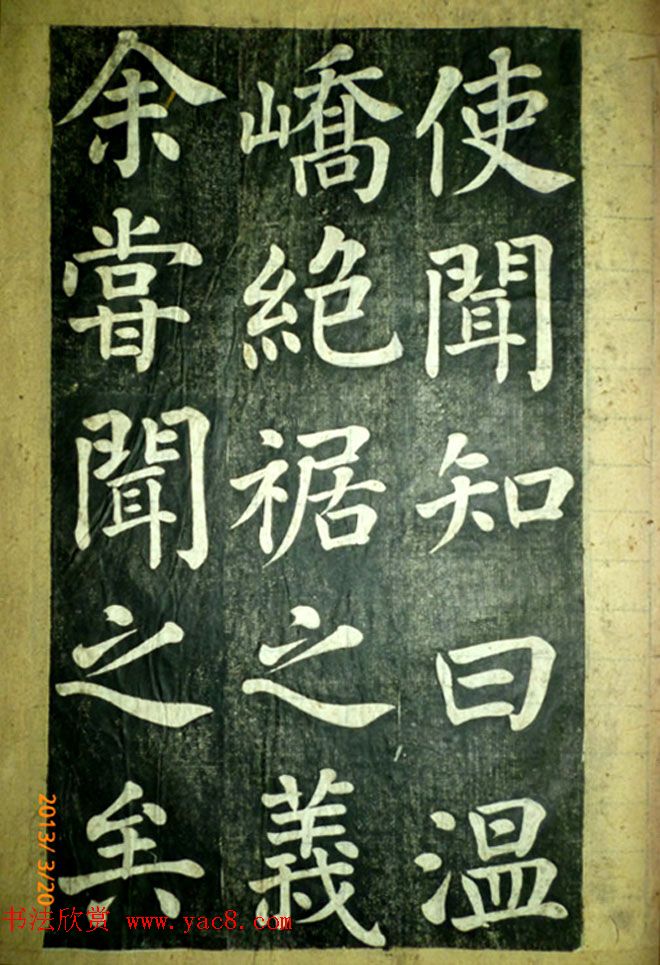 使聞知曰温
嶠絶裾之義
余嘗聞之矣
2013/3/20
书法欣赏 www.yac8.com